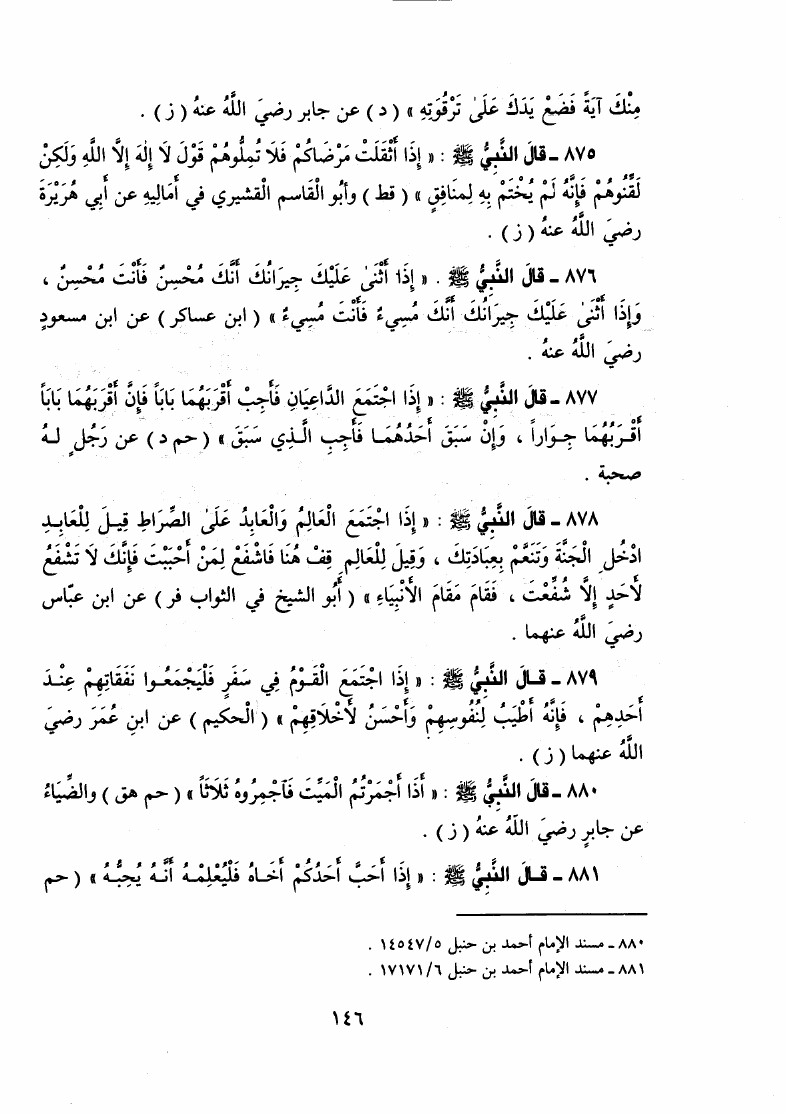 مِنْكَ آيَةً فَضَعْ يَدَكَ عَلَىٰ تَرْقُوَتِهِ » ( د ) عن جابر رضيَ اللَّهُ عنهُ ( ز ) .
٨٧٥ - قالَ النَّبِيُّ ﷺ : « إِذَا أَثْقَلَتْ مَرْضَاكُمْ فَلَا تُمِلُّوهُمْ قَوْلَ لَا إِلٰهَ إِلَّا اللَّهِ وَلَكِنْ
لَقِّنُوهُمْ فَإِنَّهُ لَمْ يُخْتَمْ بِهِ لِمنَافِقٍ » ( قط ) وأبُو الْقَاسم الْقشيري في أَمَالِيهِ عن أَبِي هُرَيْرَةَ
رضيَ اللَّهُ عنهُ ( ز ) .
٨٧٦ - قالَ النَّبِيُّ ﷺ . « إِذَا أَثْنَىٰ عَلَيْكَ جِيرَانُكَ أَنَّكَ مُحْسِنٌ فَأَنْتَ مُحْسِنٌ ،
وَإِذَا أَثْنَىٰ عَلَيْكَ جِيرَانُكَ أَنَّكَ مُسِيءٌ فَأَنْتَ مُسِيءٌ » ( ابن عساكر ) عن ابن مسعودٍ
رضيَ اللَّهُ عنهُ .
٨٧٧ - قالَ النَّبِيُّ ﷺ : « إِذَا اجْتَمَعَ الدَّاعِيَانِ فَأَجِبْ أَقْرَبَهُمَا بَاباً فَإِنَّ أَقْرَبَهُمَا بَاباً
أَقْرَبُهُمَا جِوَاراً ، وَإِنْ سَبَقَ أَحَدُهُمَا فَأَجِبِ الَّذِي سَبَقَ » ( حم د ) عن رَجُلٍ لهُ
صحبة .
٨٧٨ - قالَ النَّبِيُّ ﷺ : « إِذَا اجْتَمَعَ الْعَالِمُ وَالْعَابِدُ عَلَىٰ الصِّرَاطِ قِيلَ لِلْعَابِدِ
ادْخُلِ الْجَنَّةَ وَتَنَعَّمْ بِعِبَادَتِكَ ، وَقِيلَ لِلْعَالِمِ قِفْ هُنَا فَاشْفَعْ لِمَنْ أَحْبَبْتَ فَإِنَّكَ لَا تَشْفَعُ
لأَحَدٍ إِلَّا شُفِّعْتَ ، فَقَامَ مَقَامَ الْأَنْبِيَاءِ » ( أَبُو الشيخ في الثواب فر ) عن ابن عبّاس
رضيَ اللَّهُ عنهما .
٨٧٩ - قالَ النَّبِيُّ ﷺ : « إِذَا اجْتَمَعَ الْقَوْمُ فِي سَفَرٍ فَلْيَجْمَعُوا نَفَقَاتِهِمْ عِنْدَ
أَحَدِهِمْ ، فَإِنَّهُ أَطْيَبُ لِنُفُوسِهِمْ وَأَحْسَنُ لأَخْلَاقِهِمْ » ( الْحكيم ) عن ابنِ عُمَرَ رضيَ
اللَّهُ عنهما ( ز ) .
٨٨٠ - قالَ النَّبِيُّ ﷺ : « أَذَا أَجْمَرْتُمُ الْمَيِّتَ فَآجْمِرُوهُ ثَلَاثاً » ( حم هق ) والضِّيَاءُ
عن جابرٍ رضيَ اللَّهُ عنهُ ( ز ) .
٨٨١ - قالَ النَّبِيُّ ﷺ : « إِذَا أَحَبَّ أَحَدُكُمْ أَخَاهُ فَلْيُعْلِمْهُ أَنَّهُ يُحِبُّهُ » ( حم
٨٨٠ - مسند الإمام أحمد بن حنبل ١٤٥٤٧/٥ .
٨٨١ - مسند الإمام أحمد بن حنبل ١٧١٧١/٦ .
١٤٦